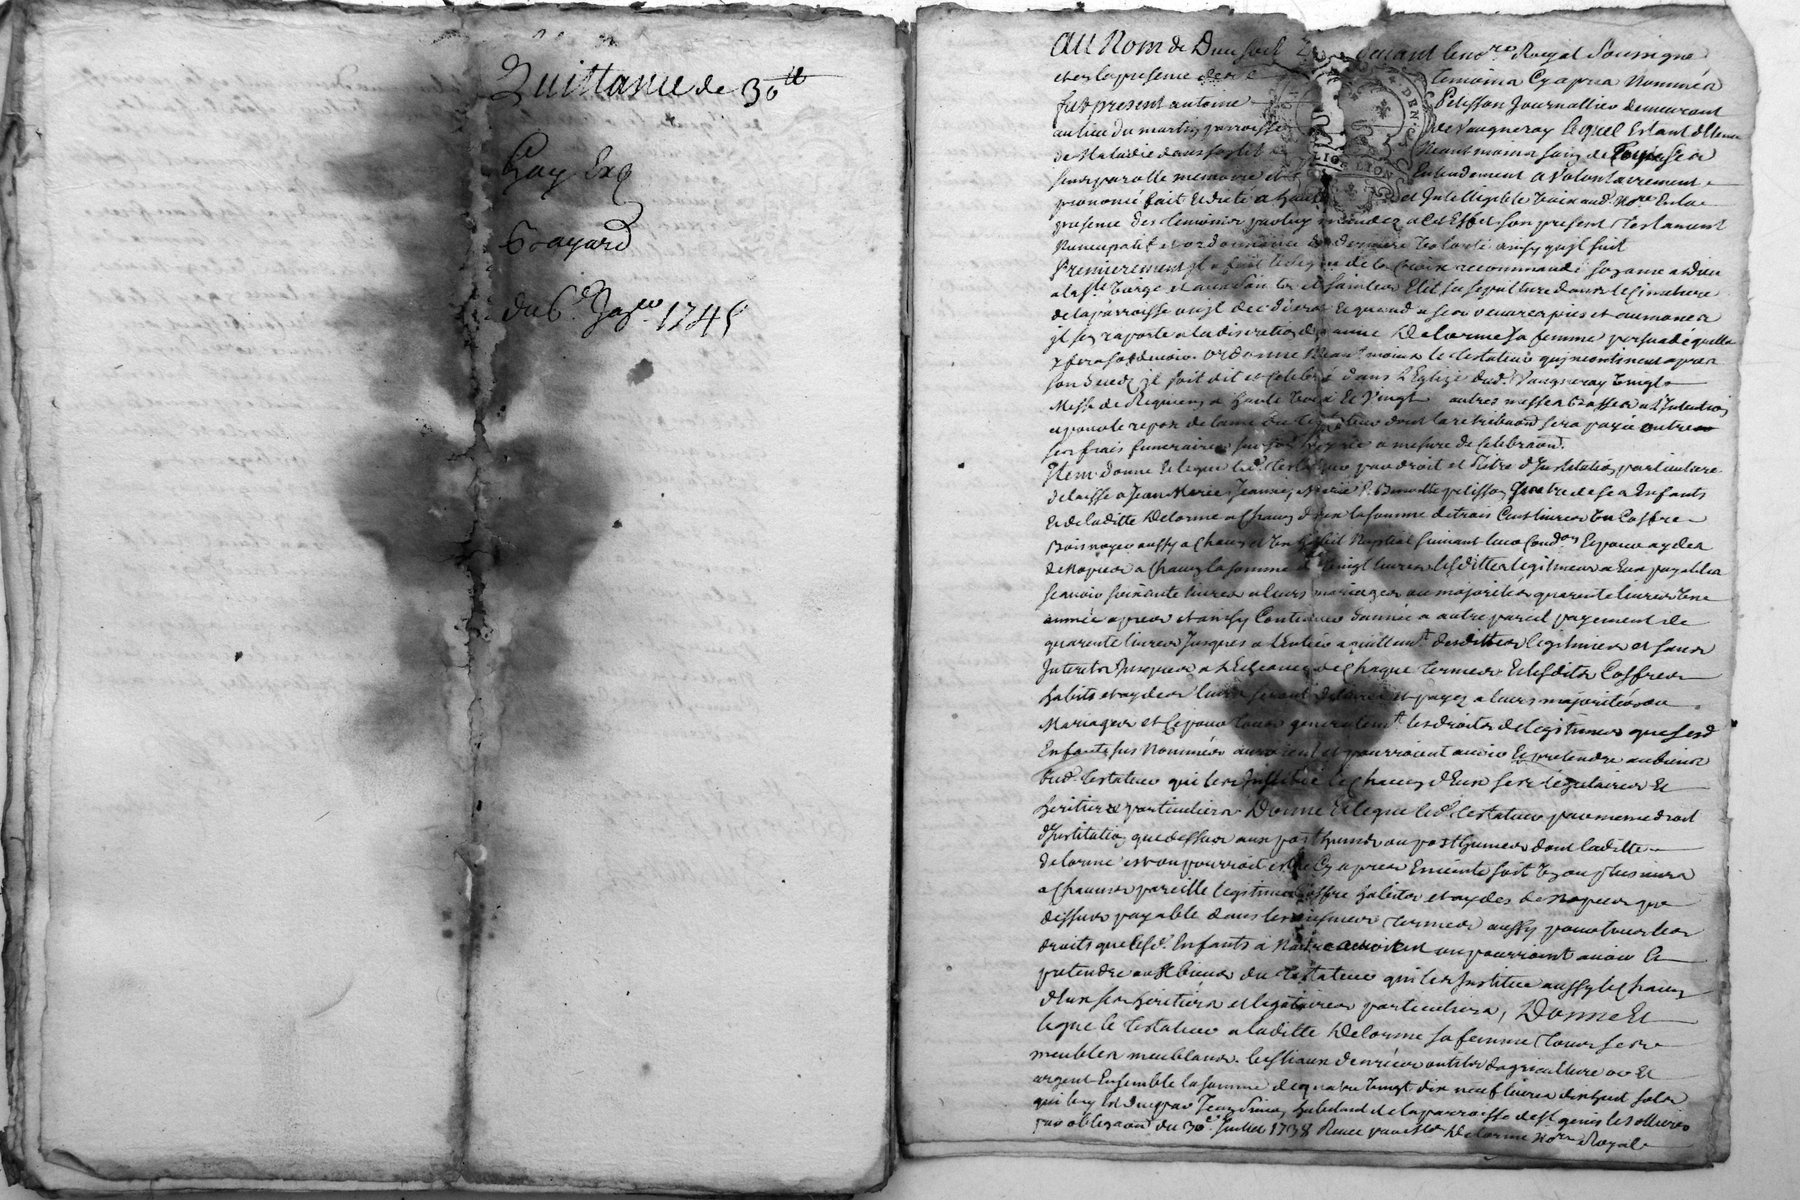 Quittance de 30ᵗᵗ
Gay Exp
Boayard
du 6ᵉ 1745
au Nom de Dieu soit Royal soussigné
et en la presence des temoins Cy apres Nommés
fut present antoine Pelisson Journallier demeurant
au lieu du martin parroisse de Vaugneray lequel Estant detenu
de Maladie dans son lit Neantmoins sain de ses
sens parolle memoire et Entendement a Volontairement
prononcé fait et dicté a haute et Intelligible Voix aud. Noʳᵉ En la
presence des temoins par luy mandez a cet Effet son present testament
Nuncupatif et ordonnance de derniere Volonté ainsy qu'il suit
Premierement il a fait le signe de la Croix recommandé son ame a Dieu
a la sᵗᵉ Vierge et aux saintes Elit sa sepulture dans le Cimetiere
de la parroisse ou jl decedera Et quand a ses œuvres pies et aumones
jl s'en raporte a la discretion d'anne Delorme sa femme persuadé quelle
y fera son devoir. ordonne Neant moins le testateur qu'incontinent apres
son deces jl soit dit et Celebré dans l'Eglize dud. Vaugneray Vingt
Messe de Requiem a haute Voix Et Vingt autres messes basses a l'Intention
et pour le repos de l'ame du testateur dont la retribuaon sera payée outre
ses frais funeraires sur son hoyrie a mesure de Celebraon.
Item donne Et legue led. testateur par droit et titre d'Institution particuliere
delaisse a Jean Marie, Jeanne, & Benoitte pelisson quatre de ses Enfants
Et de laditte Delorme a Chacun d'eux la somme de trois Cent livres Un Coffre
Bois noyer aussy a Chacun et Un habit Nuptial suivant leur Condᵒⁿ Et pour aydes
de Nopces a Chacun la somme de Vingt livres lesdittes legitimes a Eux payables
scavoir soixante livres a leurs mariages ou majorités quarente livres Une
année apres et ainsy Continuer d'année a autre pareil payement de
quarente livres Jusques a l'Entier acquittemᵗ. desdittes legitimes et sans
Interests Jusques a l'Echeance de Chaque termes Et lesdits Coffres
habits et aydes leurs seront delivrés et payez a leurs majorités ou
Mariages et Ce pour tous generalemᵗ. les droits de legitimes que sesd.
Enfants sus Nommés auroient et pourroient avoir Et pretendre aux biens
dud. testateur qui les Institue Chacun d'Eux ses legataires Et
heritiers particuliers. Donne Et legue led. testateur par meme droit
d'Institution que dessus aux posthumes ou posthumes dont laditte
delorme est ou pourroit estre Cy apres Enceinte soit Un ou plusieurs
a Chacun pareille legitime Coffre habits et aydes de Nopces que
dessus payable dans les mesmes termes aussy pour tous les
droits que lesd. Enfants a Naitre auroient ou pourroient avoir Et
pretendre aux biens du testateur qui les Institue aussy Chacun
d'Eux ses heritiers et legataires particuliers, Donne Et
legue le testateur a laditte Delorme sa femme tous ses
meubles meublans. bestiaux denrées outils d'agriculture or Et
argent Ensemble la somme de quatre Vingt dix neuf livres dix huit sols
qui luy est due par habitant de la parroisse de sᵗ. genis les ollieres
par obligaon du 30ᵉ. Juillet 1738 Receu par Mᵉ Delorme Noʳᵉ Royal